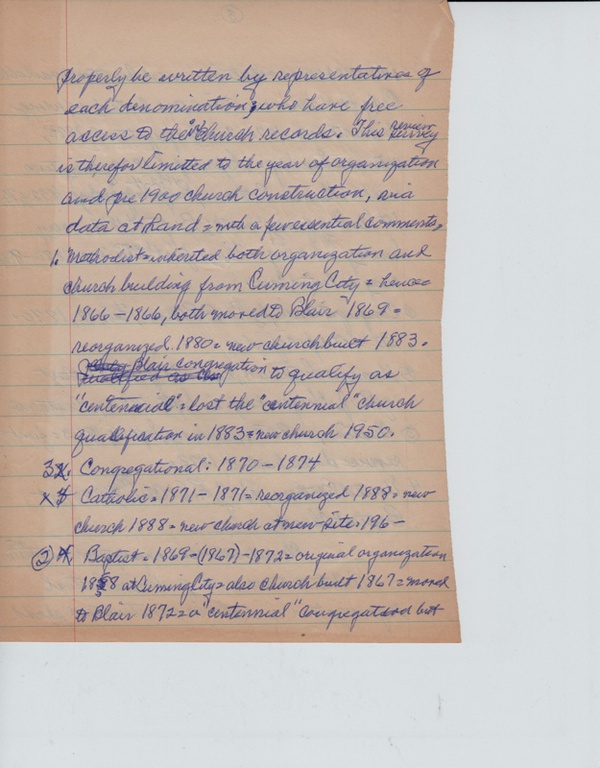 properly be written by representatives of
each denomination, who have free
access to their church records. This survey
is therefor limited to the year of organization
and pre 1900 church construction, via
data at hand = with a few essential comments.
1. Methodist = inherited both organization and
church building from Cuming City = hence
1866 - 1866, both moved to Blair 1869 =
reorganized 1880 = new church built 1883.
Blair congregation to qualify as
"centennial" = lost the "centennial" church
qualification in 1883 = new church 1950.
3. Congregational: 1870 - 1874
Catholic = 1871 - 1871 = reorganized 1888 = new
church 1888 = new church at new site = 196-
(2) Baptist = 1869 - (1867) - 1872 = original organization
1858 at Cuming City = also church built 1867 = moved
to Blair 1872 = a "centennial" congregation but